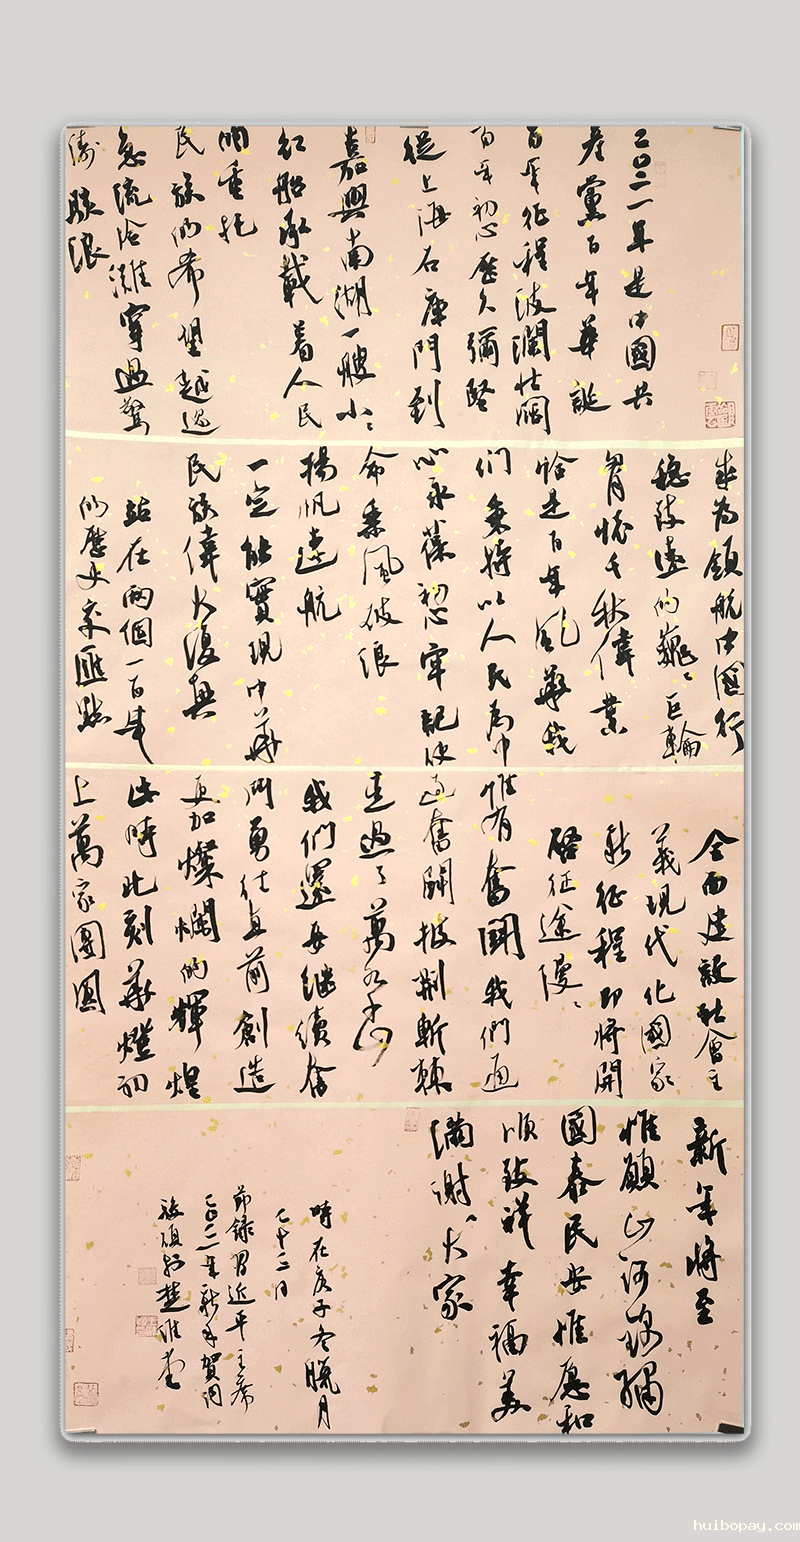 二〇二一年是中國共
産黨百年華誕
百年征程波瀾壮闊
百年初心歷久彌堅
從上海石庫門到
嘉興南湖一艘小々
红船承載着人民
的重托
民族的希望越过
急流险灘穿過驚
濤骇浪
成为領航中國行
穩致遠的巍々巨輪
胸懷千秋偉業
恰是百年風華我
们秉持以人民为中
心永葆初心牢記使
命乘風破浪
揚帆遠航
一定能實現中華
民族偉大復興
站在兩個一百年
的歷史交匯點
全面建設社會主
義現代化國家
新征程即將開
啓征途漫々
惟有奮鬭我們通
过奮鬭披荆斬棘
走過了萬水千山
我們還要继續奮
鬥勇往直前創造
更加燦爛的輝煌
此時此刻華燈初
上萬家團圓
新年將至
惟願山河錦繡
國泰民安惟愿和
順致祥幸福美
满谢々大家
時在庚子冬臘月
七十二日
節錄習近平主席
二〇二一年新年賀词